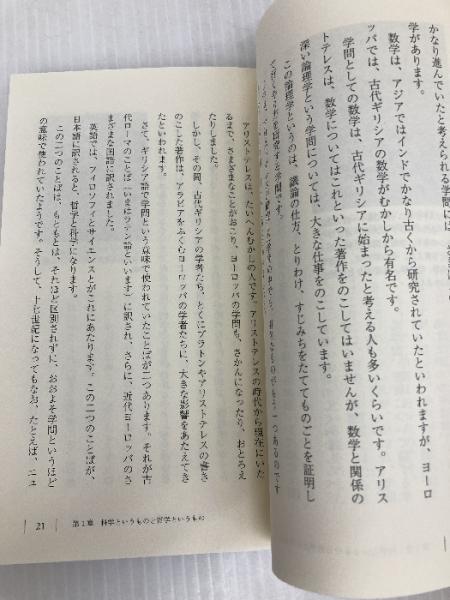 かなり進んでいたと考えられる学問には
学があります。
数学は、アジアではインドでかなり古くから研究されていたといわれますが、ヨーロ
ッパでは、古代ギリシアの数学がむかしから有名です。
学問としての数学は、古代ギリシアに始まったと考える人も多いくらいです。アリス
トテレスは、数学についてはこれといった著作をのこしてはいませんが、数学と関係の
深い論理学という学問については、大きな仕事をのこしています。
この論理学というのは、議論の仕方、とりわけ、すじみちをたててものごとを証明し
アリストテレスは、たいへんむかしの人です。アリストテレスの時代から現在にいた
るまで、さまざまなことがおこり、ヨーロッパの学問も、さかんになったり、おとろえ
たりしました。
しかし、その間、古代ギリシアの学者たち、とくにプラトンやアリストテレスの書き
のこした著作は、アラビアをふくむヨーロッパの学者たちに、大きな影響をあたえてき
たといわれます。
さて、ギリシア語で学問という意味で使われていたことばが二つあります。それが古
代ローマのことば（いまはラテン語といいます）に訳され、さらに、近代ヨーロッパのさ
まざまな国語に訳されました。
英語では、フィロソフィとサイエンスとがこれにあたります。この二つのことばが、
日本語に訳されると、哲学と科学になります。
この二つのことばは、もともとは、それほど区別されずに、おおよそ学問というほど
の意味で使われていたようです。そうして、十七世紀になってもなお、たとえば、ニュ
21 第1章 科学というものと哲学というもの